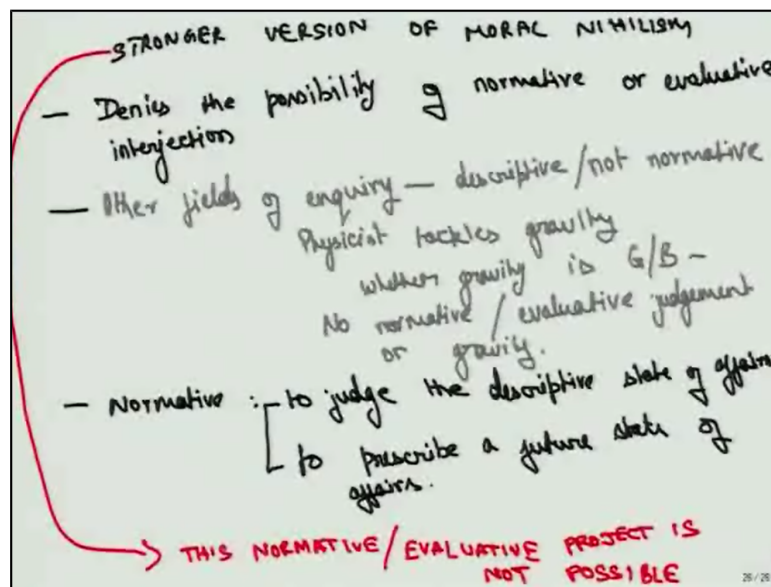 STRONGER VERSION OF MORAL NIHILISM
— Denies the possibility of normative or evaluative
interjection
— Other fields of enquiry — descriptive/not normative
Physicist tackles gravity
whether gravity is G/B –
No normative / evaluative judgement
or gravity.
— Normative :- to judge the descriptive state of affairs
to prescribe a future state of
affairs.
THIS NORMATIVE/EVALUATIVE PROJECT IS
NOT POSSIBLE
26/26